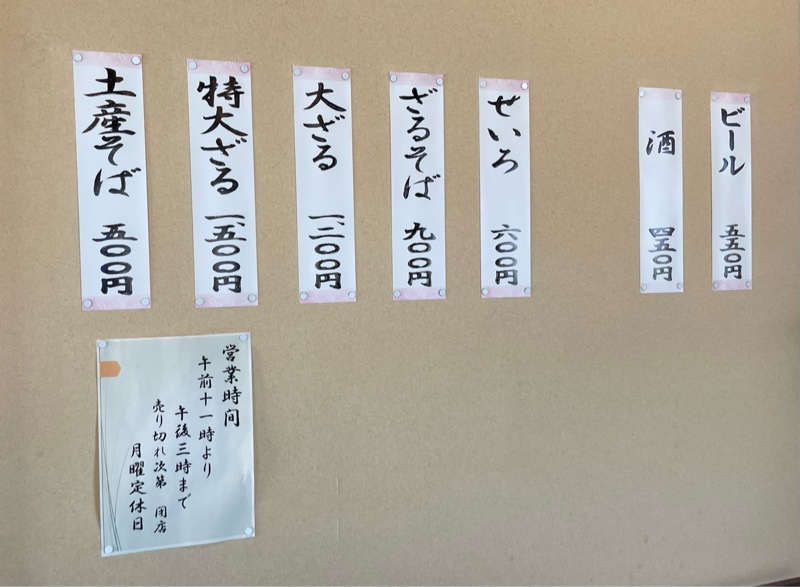 ビール 五五〇円
酒 四五〇円
せいろ 六〇〇円
ざるそば 九〇〇円
大ざる 一、二〇〇円
特大ざる 一、五〇〇円
土産そば 五〇〇円
営業時间
午前十一時より
午後三時まで
売り切れ次第 閉店
月曜定休日